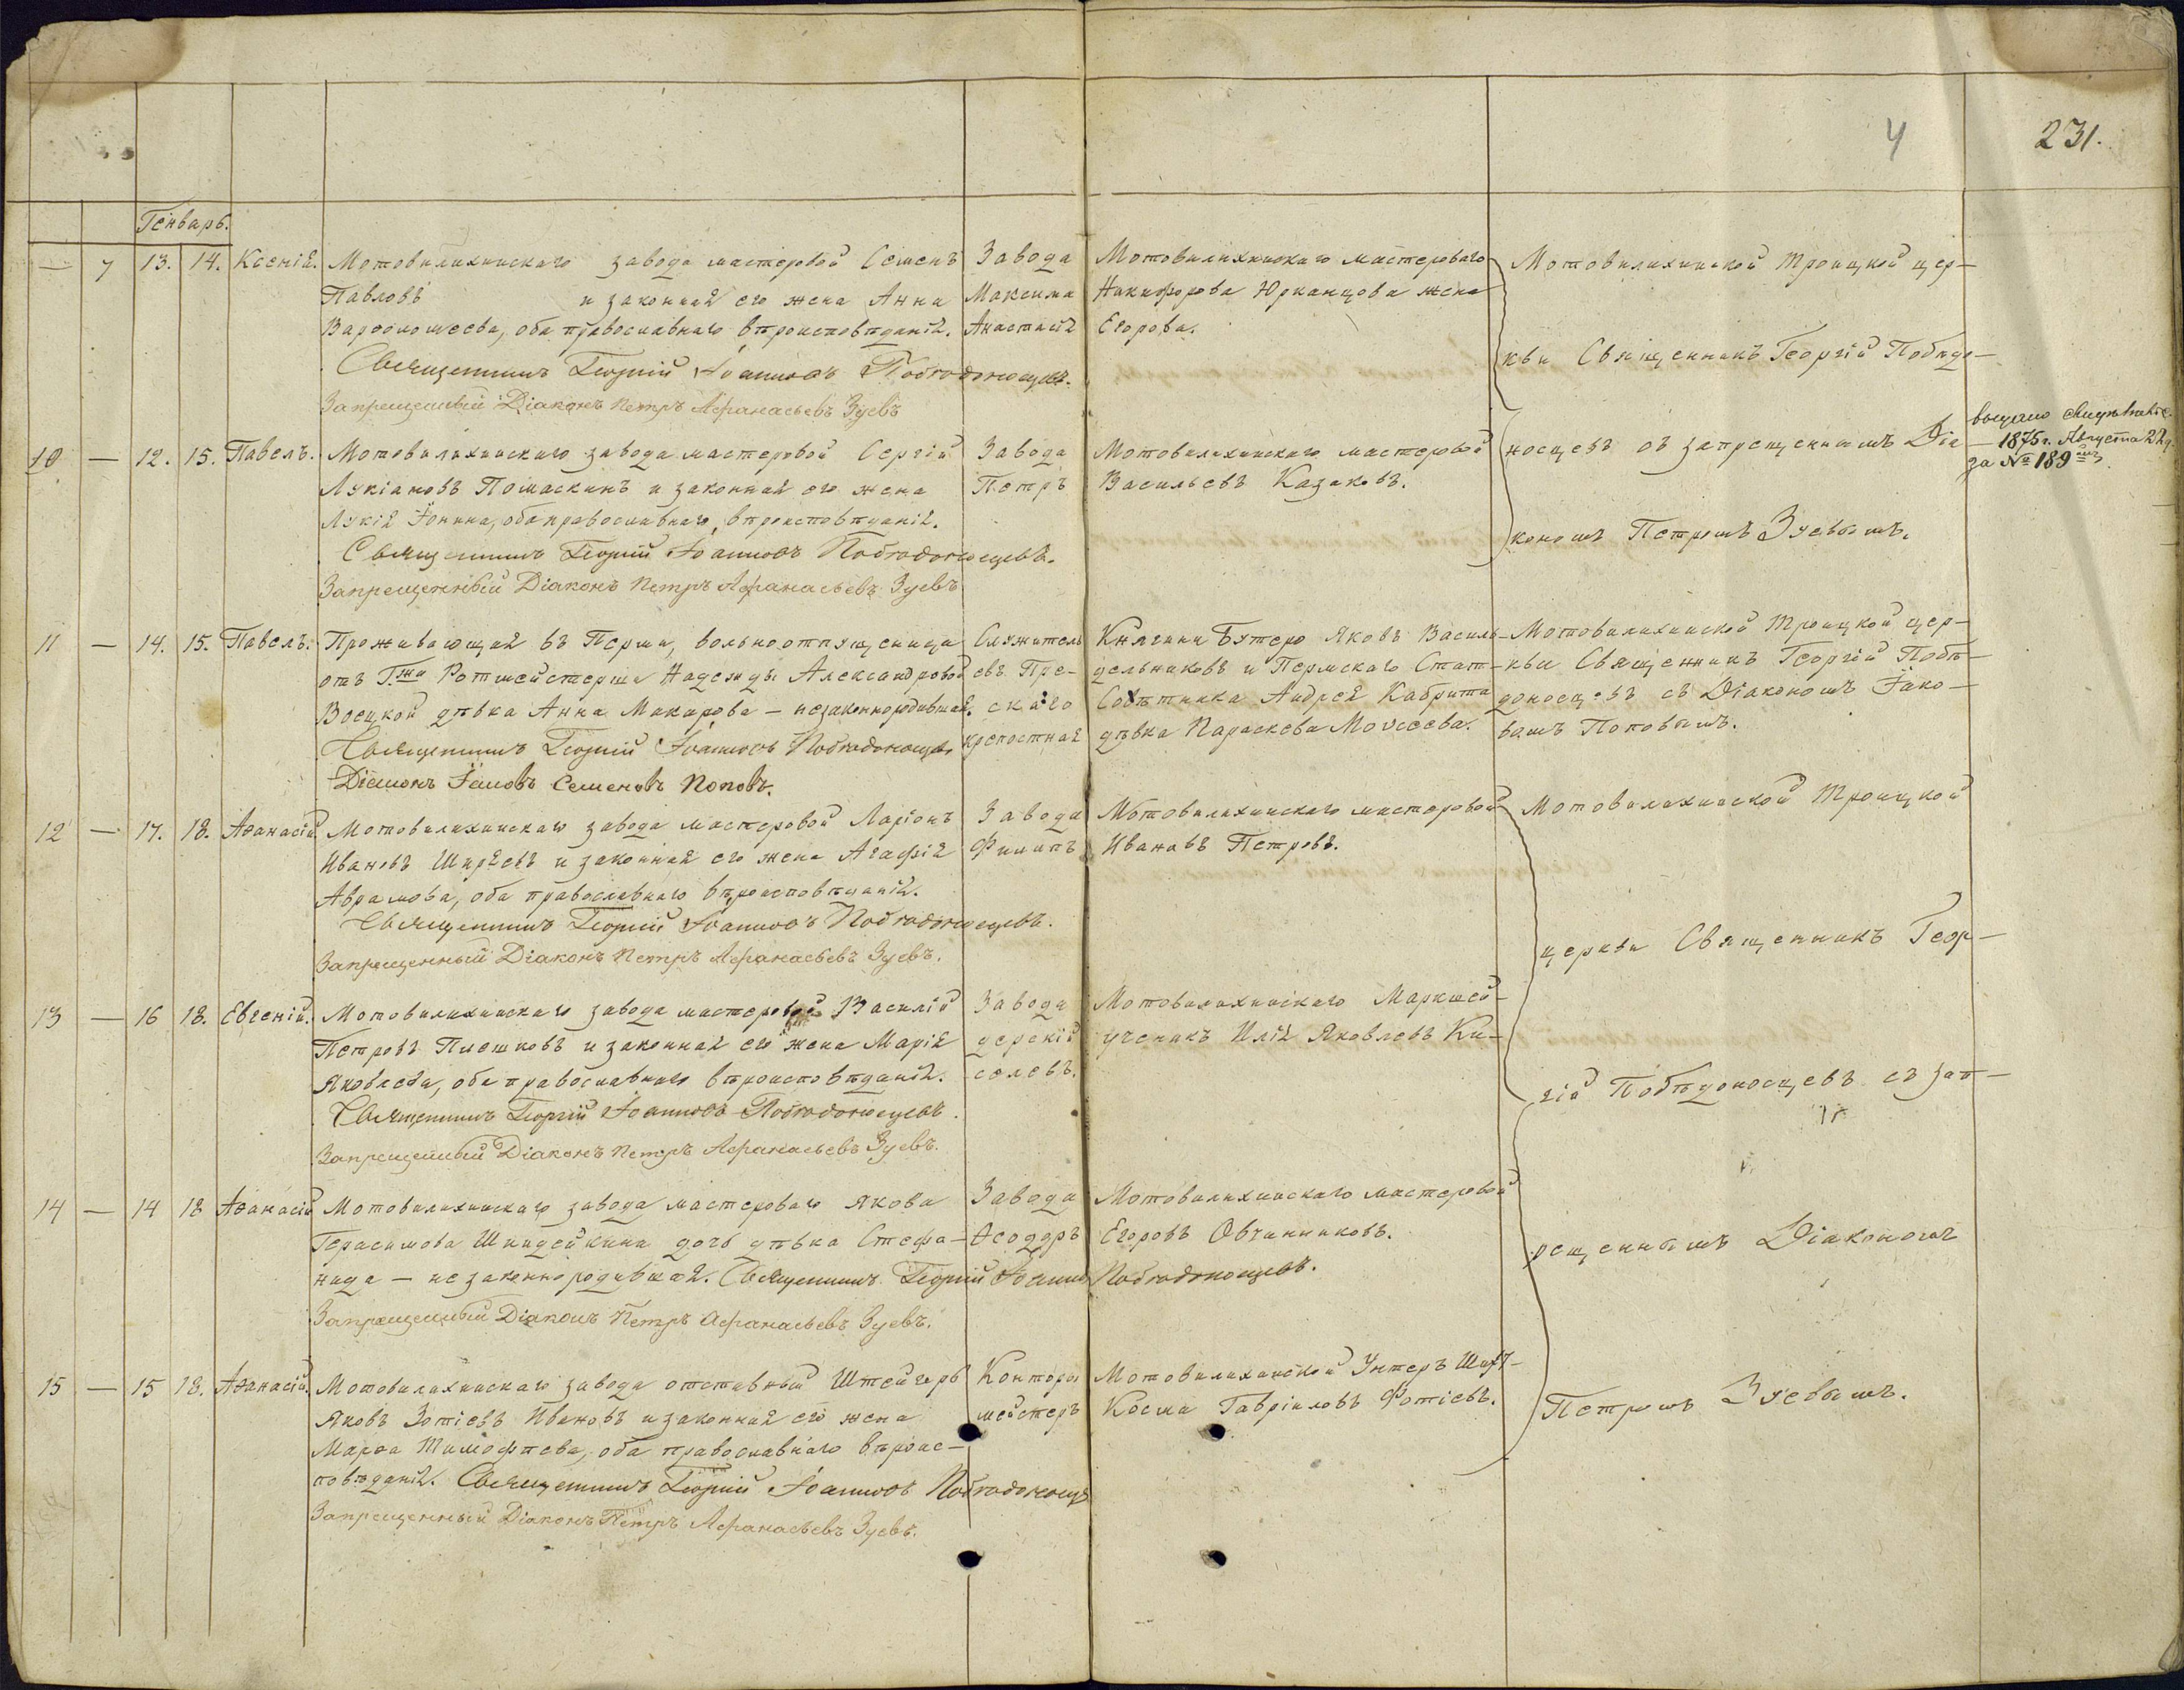 4
231.
Генварь.
— 7 13. 14. Ксенія. Мотовилихинскаго завода мастеровой Семенъ
Павловъ и законная его жена Анна
Варѳоломеева, оба православнаго вѣроисповѣданія.
Священникъ Георгій Іоанновъ Побѣдоносцевъ.
Запрещенный Діаконъ Петръ Афанасьевъ Зуевъ
Завода Мотовилихинскаго мастероваго
Максима Никифорова Юрканцова жена
Анастасія Егорова.
Мотовилихинской Троицкой цер-
кви Священникъ Георгій Побѣдо-
носцевъ съ запрещеннымъ Діа-
кономъ Петромъ Зуевымъ.
1875 г. Августа 22 д.
за № 189
10 — 12. 15. Павелъ. Мотовилихинскаго завода мастеровой Сергій
Лукіановъ Помаскинъ и законная его жена
Лукія Іонина, оба православнаго вѣроисповѣданія.
Священникъ Георгій Іоанновъ Побѣдоносцевъ.
Запрещенный Діаконъ Петръ Афанасьевъ Зуевъ
Завода Мотовилихинскаго мастеровой
Петръ Васильевъ Казаковъ.
11 — 14. 15. Павелъ. Проживающая въ Перми, вольноотпущенница
отъ Гжи Ротмейстерши Надежды Александровой
Воецкой дѣвка Анна Макарова — незаконнородившая.
Священникъ Георгій Іоанновъ Побѣдоносцевъ
Діаконъ Іаковъ Семеновъ Поповъ.
Служитель Княгини Бутеро Яковъ Василь-
евъ Пре- дельниковъ и Пермскаго Стат-
скаго Совѣтника Андрея Кабрита
крепостная дѣвка Параскева Моvсеева.
Мотовилихинской Троицкой цер-
кви Священникъ Георгій Побѣ-
доносцевъ съ Діакономъ Іако-
вомъ Поповымъ.
12 — 17. 18. Аѳанасій. Мотовилихинскаго завода мастеровой Ларіонъ
Ивановъ Ширяевъ и законная его жена Агафія
Аврамова, оба православнаго вѣроисповѣданія.
Священникъ Георгій Іоанновъ Побѣдоносцевъ.
Запрещенный Діаконъ Петръ Афанасьевъ Зуевъ.
Завода Мотовилихинскаго мастеровой
Филипъ Ивановъ Петровъ.
Мотовилихинской Троицкой
церкви Священникъ Геор-
гій Побѣдоносцевъ съ зап-
рещеннымъ Діакономъ
Петромъ Зуевымъ.
13 — 16 18. Евгенія. Мотовилихинскаго завода мастеровой Василій
Петровъ Плешковъ и законная его жена Марія
Яковлева, оба православнаго вѣроисповѣданія.
Священникъ Георгій Іоанновъ Побѣдоносцевъ.
Запрещенный Діаконъ Петръ Афанасьевъ Зуевъ.
Завода Мотовилихинскаго Маркшей-
дерскій ученикъ Илія Яковлевъ Ки-
селевъ.
14 — 14 18 Аѳанасій Мотовилихинскаго завода мастероваго Якова
Герасимова Шнидейкина дочь дѣвка Стефа-
нида — незаконнородившая. Священникъ Георгій Іоанновъ Побѣдоносцевъ.
Запрещенный Діаконъ Петръ Афанасьевъ Зуевъ.
Завода Мотовилихинскаго мастеровой
Ѳеодоръ Егоровъ Овчинниковъ.
15 — 15 18. Аѳанасій. Мотовилихинскаго завода отставный Штейгеръ
Яковъ Зотіевъ Ивановъ и законная его жена
Марѳа Тимофѣева, оба православнаго вѣроис-
повѣданія. Священникъ Георгій Іоанновъ Побѣдоносцевъ
Запрещенный Діаконъ Петръ Афанасьевъ Зуевъ.
Конторы Мотовилихинской Унтеръ Шихт-
мейстеръ Косма Гавріиловъ Фотіевъ.